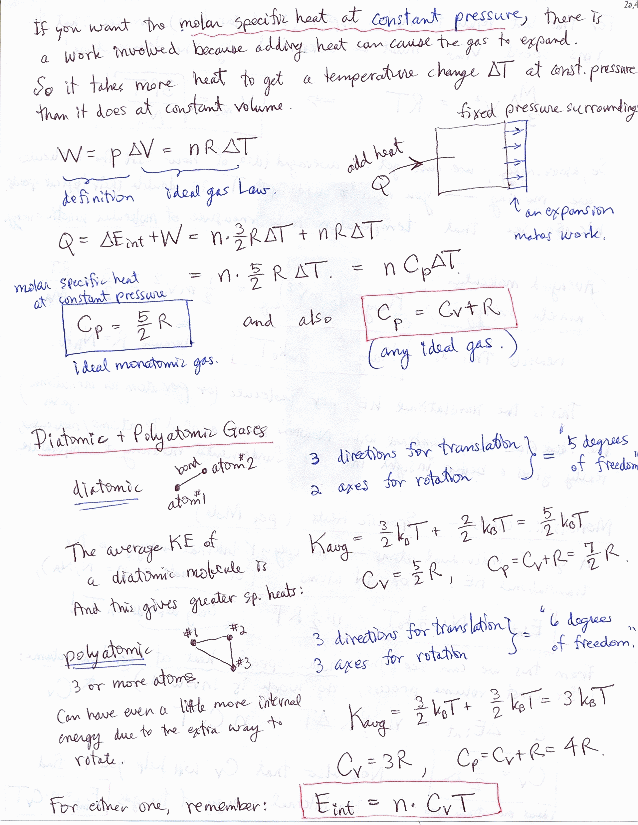 20,4
If you want the molar specific heat at constant pressure, there is
a work involved because adding heat can cause the gas to expand.
So it takes more heat to get a temperature change ΔT at const. pressure
than it does at constant volume.
fixed pressure surroundings
W = p ΔV = n R ΔT
add heat
Q
definition ideal gas Law.
↑ an expansion
makes work.
Q = ΔE int + W = n · 3/2 R ΔT + n R ΔT
= n · 5/2 R ΔT. = n Cp ΔT.
molar specific heat
at constant pressure
Cp = 5/2 R
and also
Cp = Cv + R
ideal monatomic gas.
(any ideal gas.)
Diatomic + Polyatomic Gases
diatomic
bond
atom #2
atom #1
3 directions for translation
2 axes for rotation
} = "5 degrees
of freedom"
The average KE of
a diatomic molecule is
And this gives greater sp. heats:
Kavg = 3/2 kBT + 2/2 kBT = 5/2 kBT
Cv = 5/2 R, Cp = Cv + R = 7/2 R.
polyatomic
#1 #2
#3
3 or more atoms.
3 directions for translation
3 axes for rotation
} = "6 degrees
of freedom."
Can have even a little more internal
energy due to the extra way to
rotate.
Kavg = 3/2 kBT + 3/2 kBT = 3 kBT
Cv = 3R, Cp = Cv + R = 4R.
For either one, remember:
Eint = n · CvT